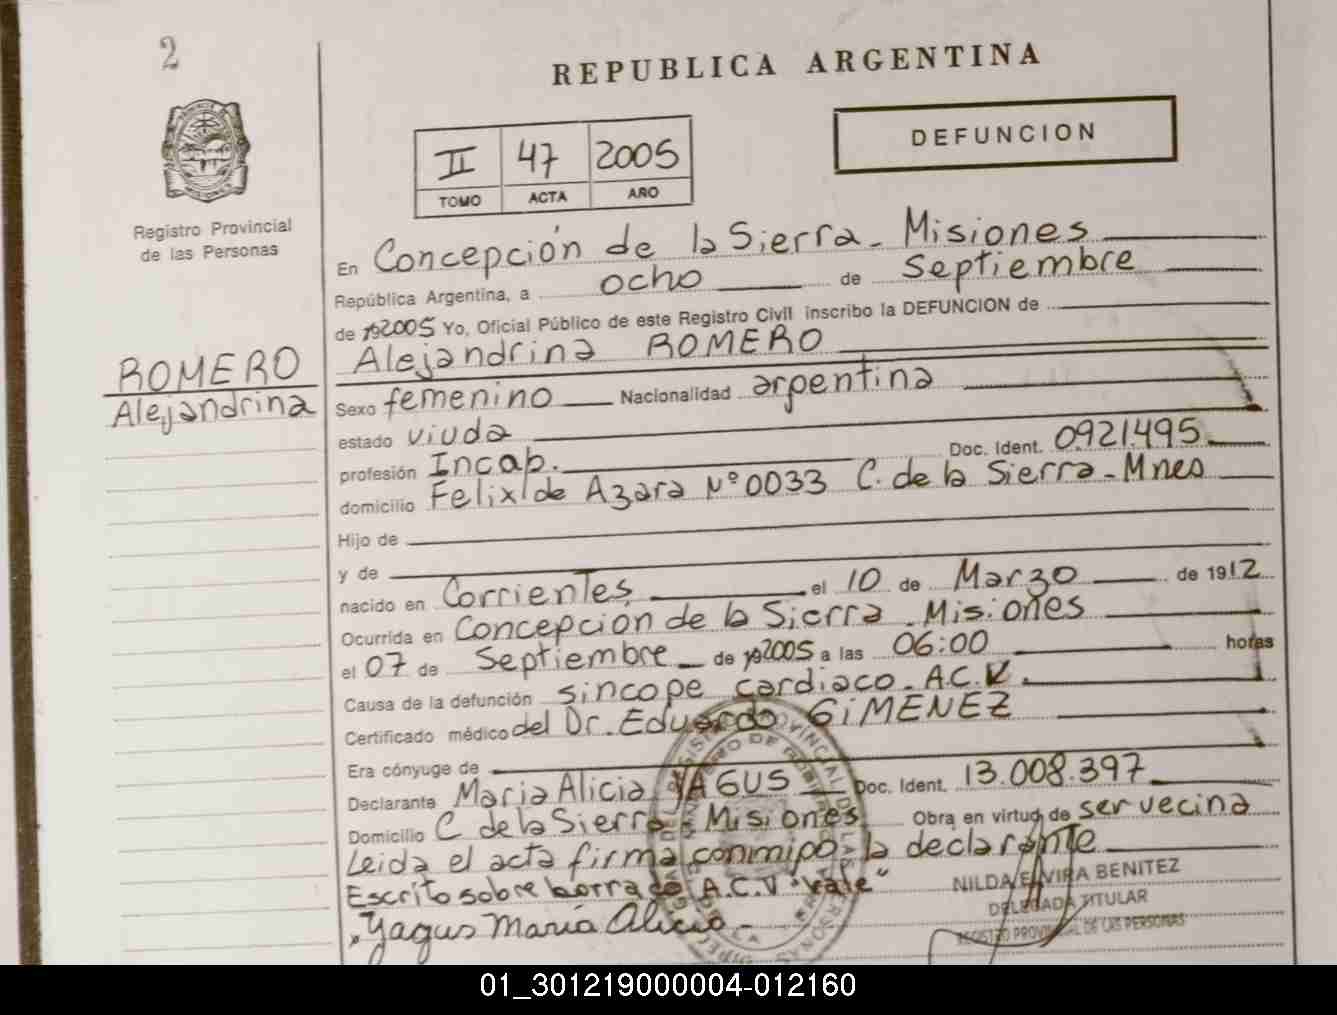 2
REPUBLICA ARGENTINA
DEFUNCION
II 47 2005
TOMO ACTA AÑO
Registro Provincial
de las Personas
En Concepción de la Sierra - Misiones
República Argentina, a ocho de Septiembre
de 192005 Yo, Oficial Público de este Registro Civil inscribo la DEFUNCION de
Alejandrina ROMERO
ROMERO
Alejandrina
Sexo femenino Nacionalidad argentina
estado viuda
profesión Incap. Doc. Ident. 0.921.495
domicilio Felix de Azara Nº 0033 C. de la Sierra - Mnes
Hijo de
y de
nacido en Corrientes, el 10 de Marzo de 1912
Ocurrida en Concepcion de la Sierra - Misiones
el 07 de Septiembre de 192005 a las 06:00 horas
Causa de la defunción sincope cardiaco - A.C.V.
Certificado médico del Dr. Eduardo GiMENEZ
Era cónyuge de
Declarante Maria Alicia YAGUS Doc. Ident. 13.008.397
Domicilio C de la Sierra Misiones Obra en virtud de ser vecina
Leida el acta firma conmigo la declarante
Escrito sobre borrado A.C.V "vale"
Yagus María Alicia -
NILDA ELVIRA BENITEZ
DELEGADA TITULAR
REGISTRO PROVINCIAL DE LAS PERSONAS
01_301219000004-012160